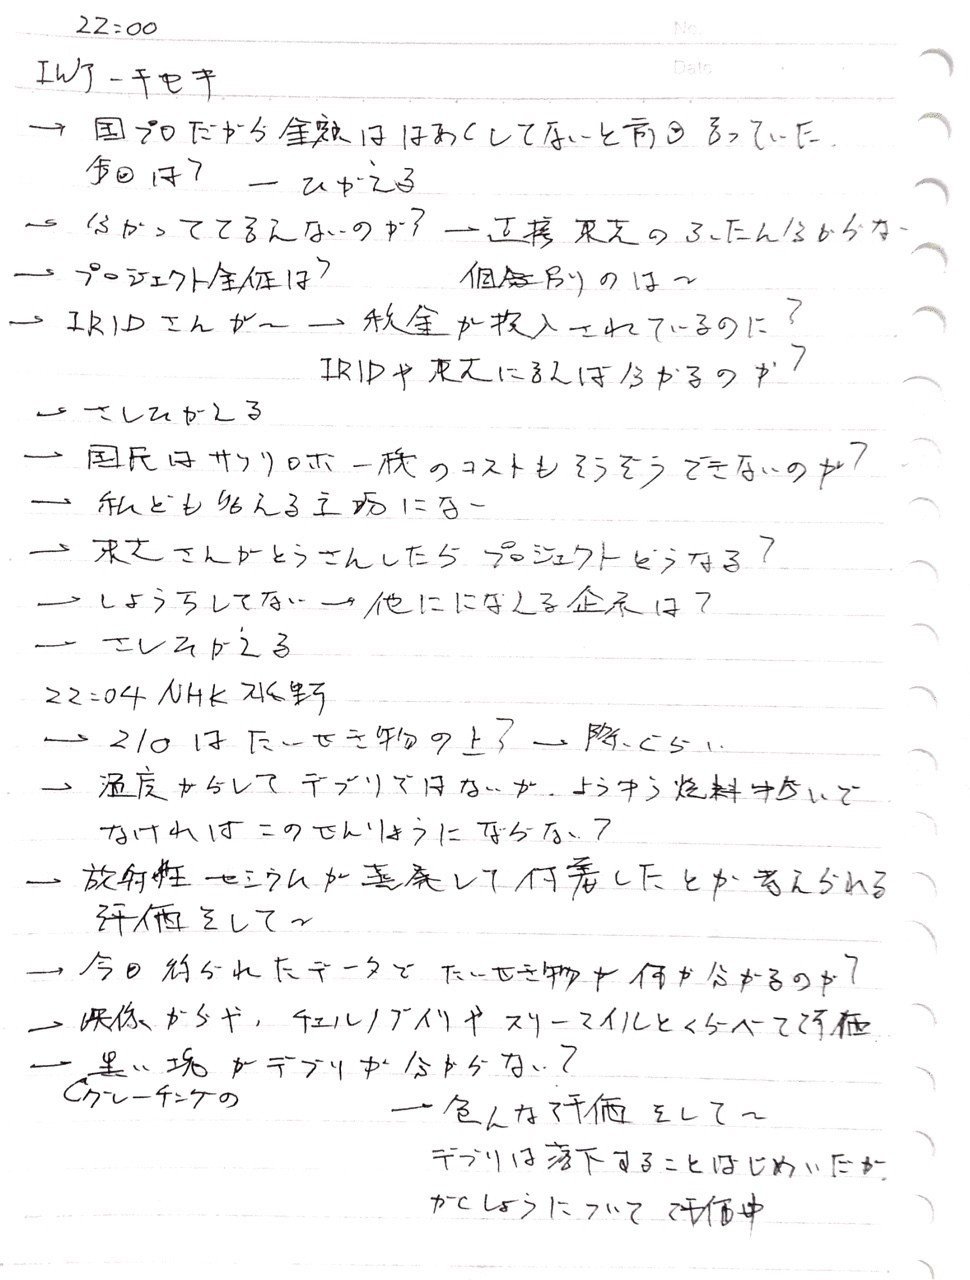 No.
Date
22:00
IWJ - チセキ
→ 国プロだから金額ははあくしてないと前回言っていた.
今回は? — ひかえる
→ 分かってて言えないのか? → 直接東芝のふたん分からない
→ プロジェクト全体は? 個別のは～
→ IRIDさんが～ → 税金が投入されているのに?
IRIDや東芝に言えば分かるのか?
→ さしひかえる
→ 国民はサソリロボ一機のコストもそうぞうできないのか?
→ 私ども答える立場にな-
→ 東芝さんがとうさんしたらプロジェクトどうなる?
→ しょうちしてない → 他ににないえる企業は?
→ さしひかえる
22:04 NHK 水野
→ 210はたいせき物の上? → 除いぐらい
→ 温度からしてデブリではないが、ようゆう燃料 でなければこのせんりょうにならない?
→ 放射性セシウムが蒸発して付着したとか考えられる
評価をして～
→ 今回得られたデータでたいせき物か何か分かるのか?
→ 映像からや、チェルノブイリやスリーマイルとくらべて評価
→ 黒い塊がデブリか分からない?
グレーチングの
→ 色んな評価をして～
デブリは落下することはじめいだが、
かくしょうについて評価中